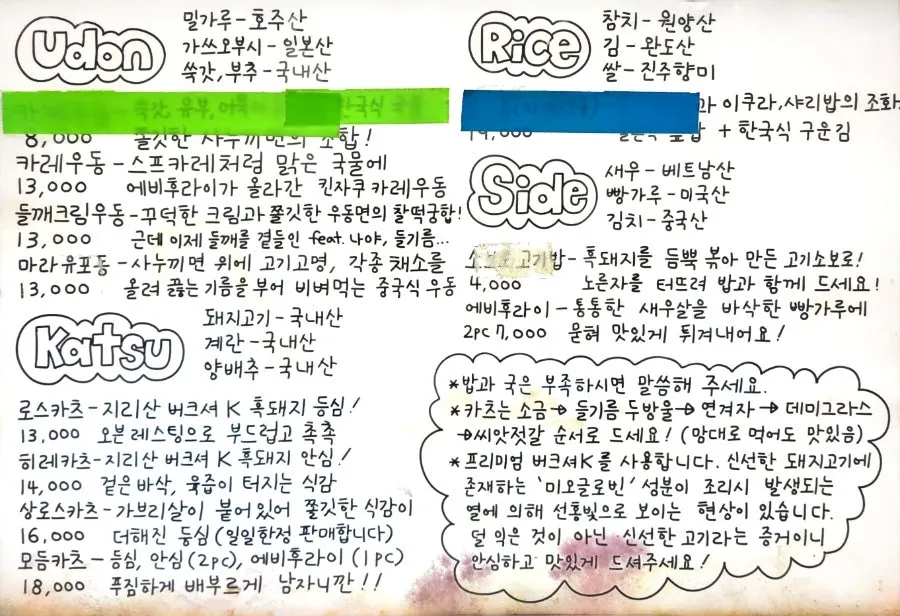 Udon
밀가루 - 호주산
가쓰오부시 - 일본산
쑥갓, 부추 - 국내산
쑥갓, 유부, 어묵
한국식 국물
8,000 쫄깃한 사누끼면의 조합!
카레우동 - 스프카레처럼 맑은 국물에
13,000 에비후라이가 올라간 킨자쿠 카레우동
들깨크림우동 - 꾸덕한 크림과 쫄깃한 우동면의 찰떡궁합!
13,000 근데 이제 들깨를 곁들인 feat. 나야, 들기름...
마라유포동 - 사누끼면 위에 고기고명, 각종 채소를
13,000 올려 끓는 기름을 부어 비벼먹는 중국식 우동
Katsu
돼지고기 - 국내산
계란 - 국내산
양배추 - 국내산
로스카츠 - 지리산 버크셔 K 흑돼지 등심!
13,000 오븐 레스팅으로 부드럽고 촉촉
히레카츠 - 지리산 버크셔 K 흑돼지 안심!
14,000 겉은 바삭, 육즙이 터지는 식감
상로스카츠 - 가브리살이 붙어있어 쫄깃한 식감이
16,000 더해진 등심 (일일한정 판매합니다)
모듬카츠 - 등심, 안심 (2pc), 에비후라이 (1pc)
18,000 푸짐하게 배부르게 남자니깐!!
Rice
참치 - 원양산
김 - 완도산
쌀 - 진주향미
과 이쿠라, 샤리밥의 조화
+ 한국식 구운김
Side
새우 - 베트남산
빵가루 - 미국산
김치 - 중국산
고기밥 - 흑돼지를 듬뿍 볶아 만든 고기소보로!
4,000 노른자를 터뜨려 밥과 함께 드세요!
에비후라이 - 통통한 새우살을 바삭한 빵가루에
2pc 7,000 묻혀 맛있게 튀겨내어요!
*밥과 국은 부족하시면 말씀해 주세요.
*카츠는 소금 → 들기름 두방울 → 연겨자 → 데미그라스
→ 씨앗젓갈 순서로 드세요! (망대로 먹어도 맛있음)
*프리미엄 버크셔K를 사용합니다. 신선한 돼지고기에
존재하는 '미오글로빈' 성분이 조리시 발생되는
열에 의해 선홍빛으로 보이는 현상이 있습니다.
덜 익은 것이 아닌 신선한 고기라는 증거이니
안심하고 맛있게 드셔주세요!